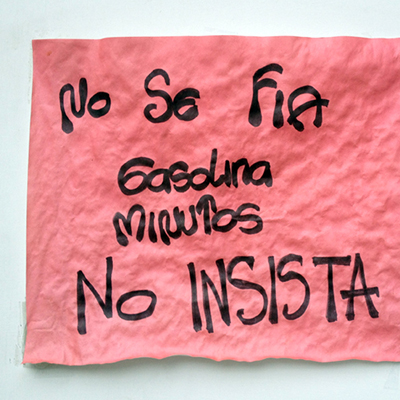 No SE FIA
Gasolina
MINUTOS
No INSISTA